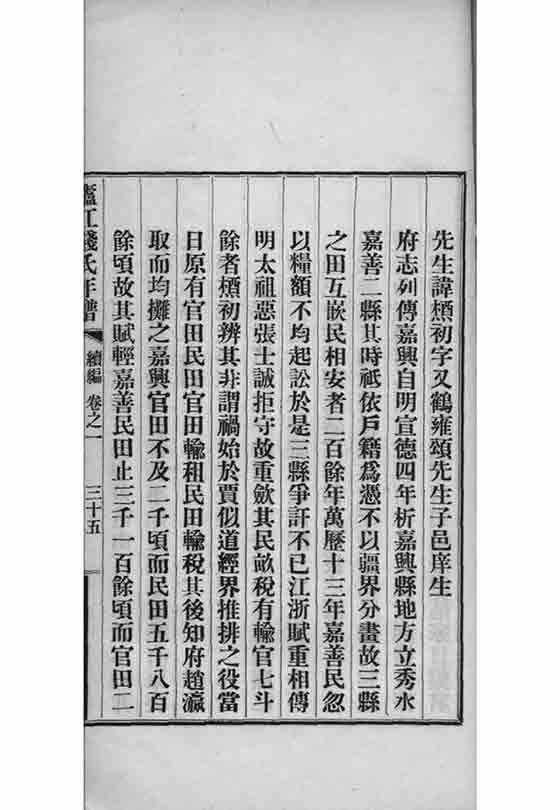 先生諱槱初字又鶴雍頌先生子邑庠生
府志列傳嘉興自明宣德四年析嘉興縣地方立秀水
嘉善二縣其時祗依戶籍爲憑不以疆界分畫故三縣
之田互嵌民相安者二百餘年萬歷十三年嘉善民忽
以糧額不均起訟於是三縣爭訐不已江浙賦重相傳
明太祖惡張士誠拒守故重斂其民畝稅有輸官七斗
餘者槱初辨其非謂禍始於賈似道經界推排之役當
日原有官田民田官田輸租民田輸稅其後知府趙瀛
取而均攤之嘉興官田不及二千頃而民田五千八百
餘頃故其賦輕嘉善民田止三千一百餘頃而官田二
廬江錢氏年譜 續編 卷之一 三十五